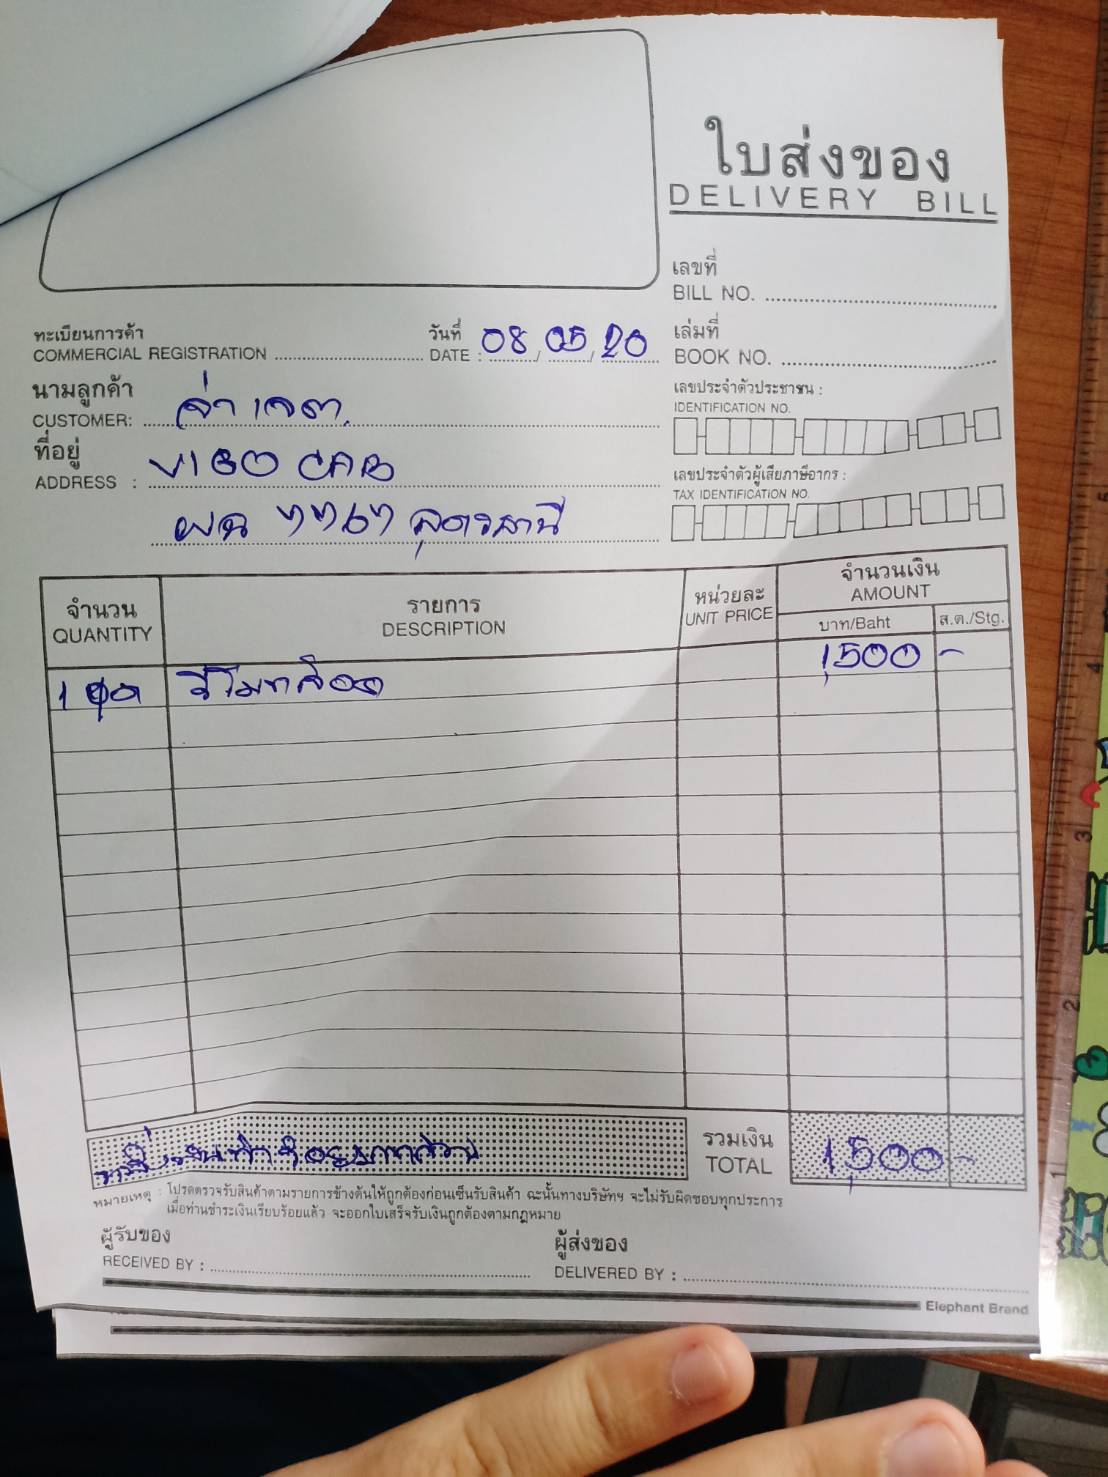 ใบส่งของ
DELIVERY BILL
เลขที่
BILL NO.
ทะเบียนการค้า
COMMERCIAL REGISTRATION
วันที่
DATE : 08 / 05 / 20
เล่มที่
BOOK NO.
นามลูกค้า
CUSTOMER: จ่า เจต.
เลขประจำตัวประชาชน :
IDENTIFICATION NO.
ที่อยู่
ADDRESS : VIGO CAB
อุดรธานี
เลขประจำตัวผู้เสียภาษีอากร :
TAX IDENTIFICATION NO.
จำนวน รายการ หน่วยละ จำนวนเงิน
QUANTITY DESCRIPTION UNIT PRICE AMOUNT
บาท/Baht ส.ต./Stg.
1 ชุด รีโมทล็อค 1,500 -
รวมเงิน
TOTAL 1,500 -
หมายเหตุ : โปรดตรวจรับสินค้าตามรายการข้างต้นให้ถูกต้องก่อนเซ็นรับสินค้า ฉะนั้นทางบริษัทฯ จะไม่รับผิดชอบทุกประการ
เมื่อท่านชำระเงินเรียบร้อยแล้ว จะออกใบเสร็จรับเงินถูกต้องตามกฎหมาย
ผู้รับของ
RECEIVED BY :
ผู้ส่งของ
DELIVERED BY :
Elephant Brand